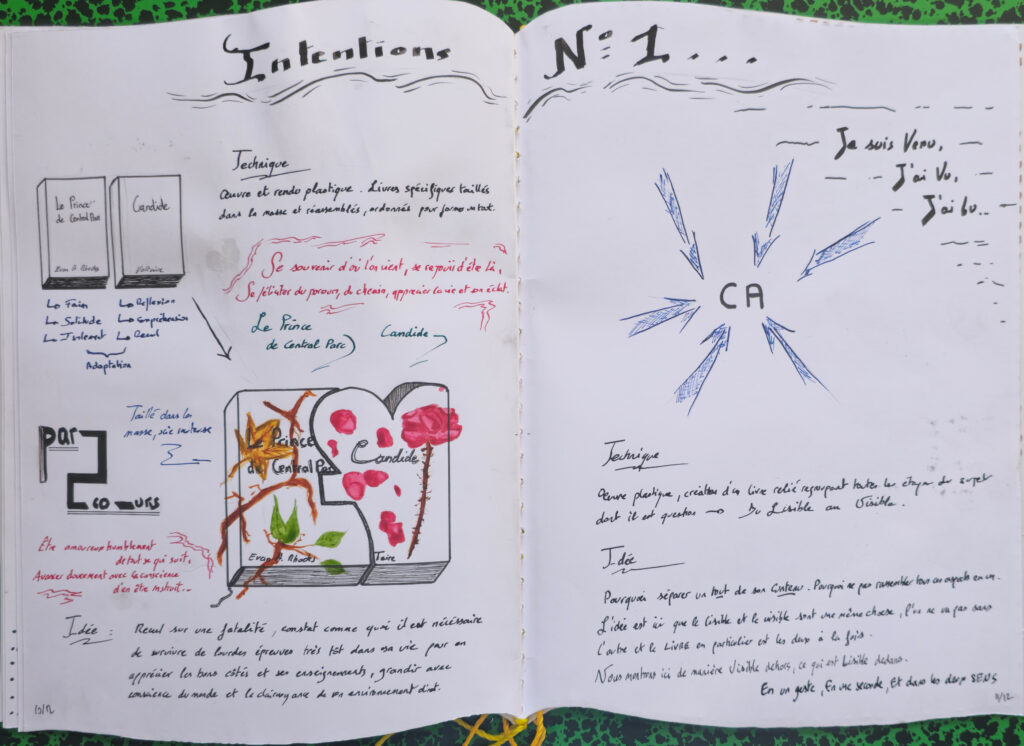 Intentions
Technique
Œuvre et rendu plastique. Livres spécifiques taillés
dans la masse et réassemblés, ordonnés pour former un tout.
Le Prince
de Central Parc
Evan H. Rhodes
Candide
Voltaire
La Faim
La Solitude
L'Isolement
La Réflexion
La Compréhension
Le Recul
Adaptation
Se souvenir d'où l'on vient, se rejouir d'être là,
Se féliciter du parcours, du chemin, apprécier la vie et son éclat.
Le Prince
de Central Parc
Candide
Taillé dans la
masse, scie sauteuse
par
cours
Le Prince
de Central Parc
Candide
Evan H. Rhodes
Taire
Être amoureux humblement
de tout ce qui suit,
Avancer doucement avec la conscience
d'en être instruit...
Idée :
Recul sur une fatalité, constat comme quoi il est nécessaire
de survivre de lourdes épreuves très tôt dans sa vie pour en
apprécier les bons côtés et ses enseignements, grandir avec
conscience du monde et la clairvoyance de son environnement
N° 1...
Je suis Venu,
J'ai Vu,
J'ai lu...
CA
Technique
Œuvre plastique, création d'un livre relié regroupant toutes les étapes du sujet
dont il est question → Du Lisible au Visible.
Idée
Pourquoi séparer un tout de son contenu. Pourquoi ne pas rassembler tous ces aspects en un.
L'idée est ici que le lisible et le visible sont une même chose, l'un ne va pas sans
l'autre et le LIVRE en particulier est les deux à la fois.
Nous montrons ici de manière Visible dehors, ce qui est Lisible dedans.
En un geste, En une seconde, Et dans les deux SENS